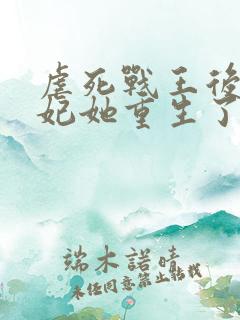 虐死戰王後
妃她重生了
端木諾晴
未經同意禁止轉載